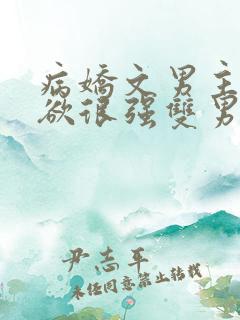 病嬌文男主
欲很强雙男
尹志平
未经同意禁止转载